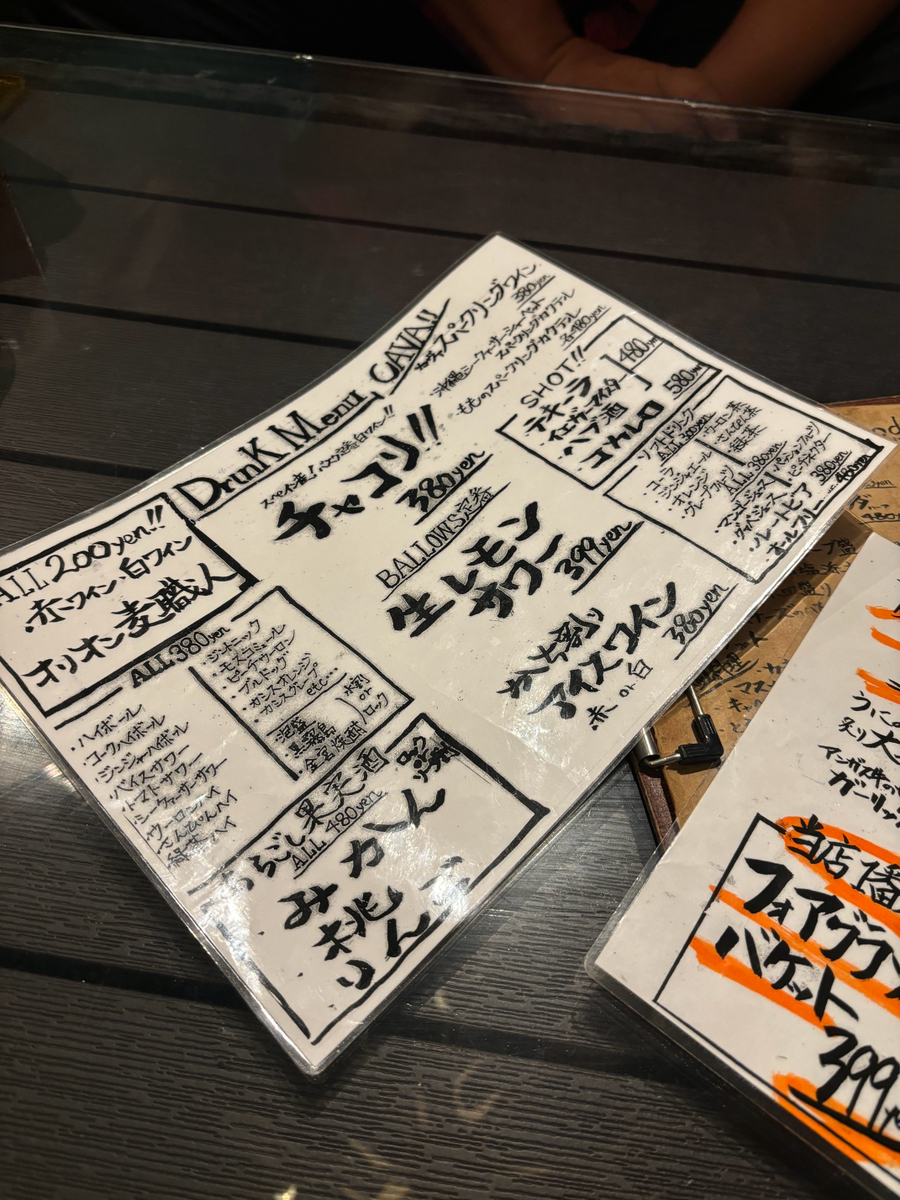 Drink Menu
ALL 200yen!!
赤ワイン・白ワイン
オリオン麦職人
ALL 380yen
・ハイボール
・コークハイボール
・ジンジャーハイボール
・バイスサワー
・トマトサワー
・シークワーサーサワー
・ウーロンハイ
・さんぴんハイ
・緑茶ハイ
・ジントニック
・モスコミュール
・ピーチウーロン
・ブルドッグ
・カシスオレンジ
・カシスグレープ
etc…
泡盛
黒霧島
金宮焼酎
水割
or
ロック
ごし果実酒
ALL 480yen
みかん
桃
りんご
チャコリ!!
380yen
BALLOWS定番
生レモン
サワー
399yen
かち割り
アイスワイン
赤 or 白
380yen
CAVA!!
スパークリングワイン
380yen
沖縄シークヮーサーシャーベット
スパークリングカクテル
・もものスパークリングカクテル
各480yen
SHOT!!
テキーラ
イエガーマイスター
ハブ酒
480yen
コカレロ
580yen
ソフトドリンク
ALL 300yen
・コーラ
・ジンジャエール
・オレンジ
・グレープフルーツ
・ウーロン茶
・さんぴん茶
・緑茶
ALL 380yen
・マンゴジュース
・グァバジュース
・パッションフルーツ
・ピーチネクター
・ルートビア 380yen
・オールフリー 480yen
うにの
ガーリック
当店1番
フォアグラ
バケット
399